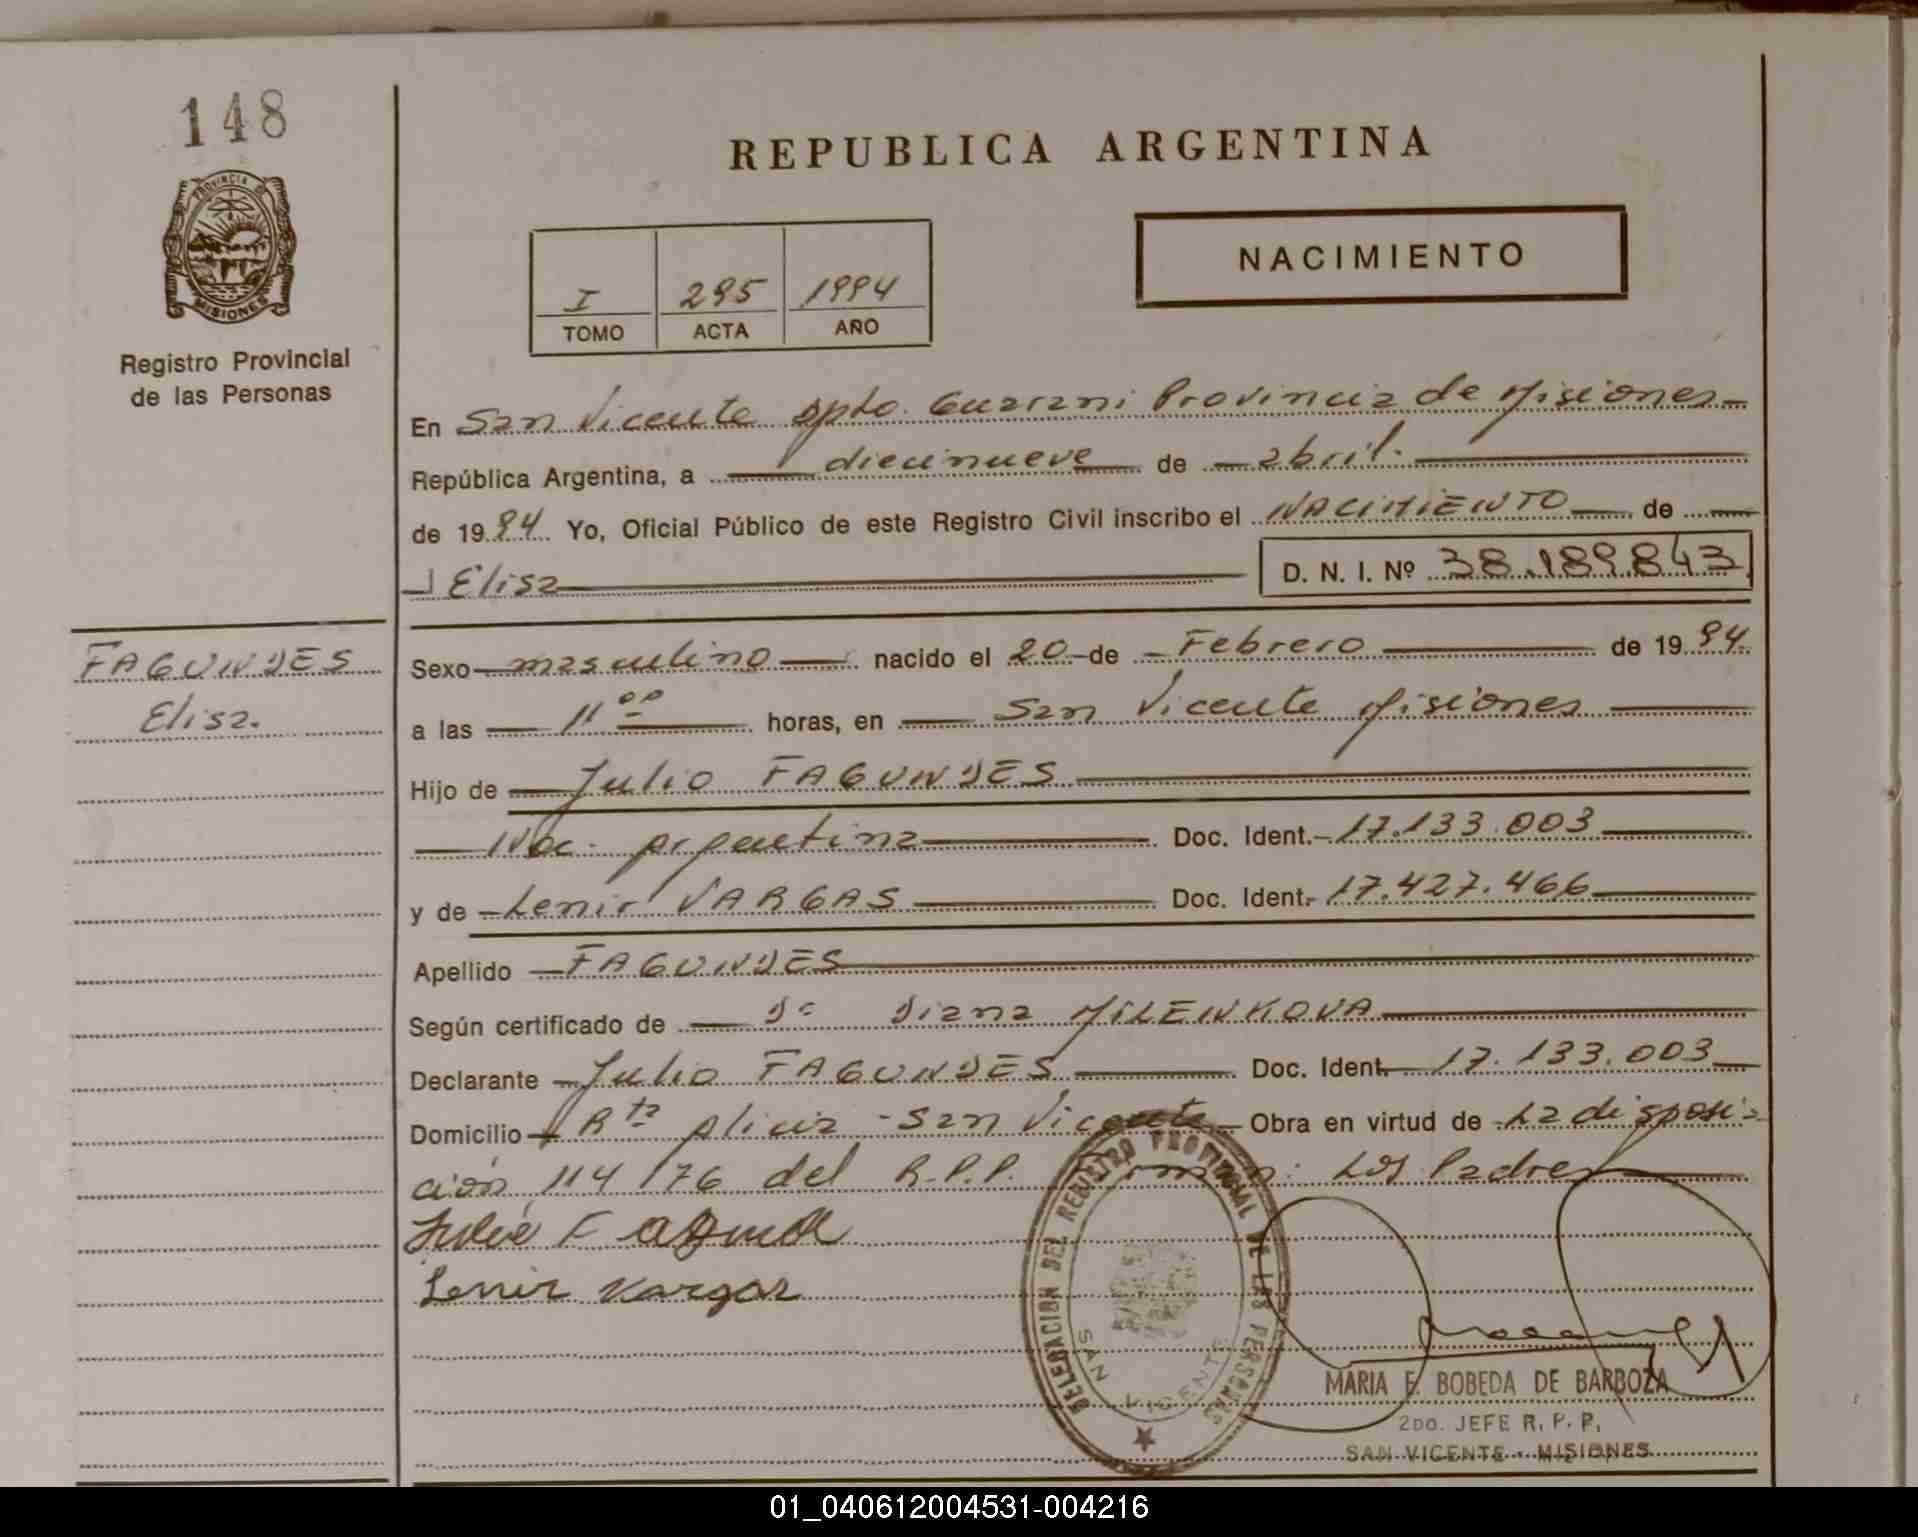 148
PROVINCIA DE
MISIONES
Registro Provincial
de las Personas
REPUBLICA ARGENTINA
I 295 1994
TOMO ACTA AÑO
NACIMIENTO
En San Vicente Dpto. Guarani Provincia de Misiones
República Argentina, a diecinueve de abril.
de 1994 Yo, Oficial Público de este Registro Civil inscribo el NACIMIENTO de
Elisa D. N. I. Nº 38.189.843
FAGUNDES
Elisa.
Sexo masculino nacido el 20 de Febrero de 1994.
a las 11 00 horas, en San Vicente Misiones
Hijo de Julio FAGUNDES
Nac. Argentina Doc. Ident. 17.133.003
y de Lenir VARGAS Doc. Ident. 17.427.466
Apellido FAGUNDES
Según certificado de Dª Diana MILENKOVA
Declarante Julio FAGUNDES Doc. Ident. 17.133.003
Domicilio Rta Alicia - San Vicente Obra en virtud de La disposi-
ción 114/76 del R.P.P. Firman: Los Padres
Lenir Vargas
DELEGACION DEL REGISTRO PROVINCIAL DE LAS PERSONAS
SAN VICENTE
MARIA E. BOBEDA DE BARBOZA
2DO. JEFE R. P. P.
SAN VICENTE - MISIONES
01_040612004531-004216